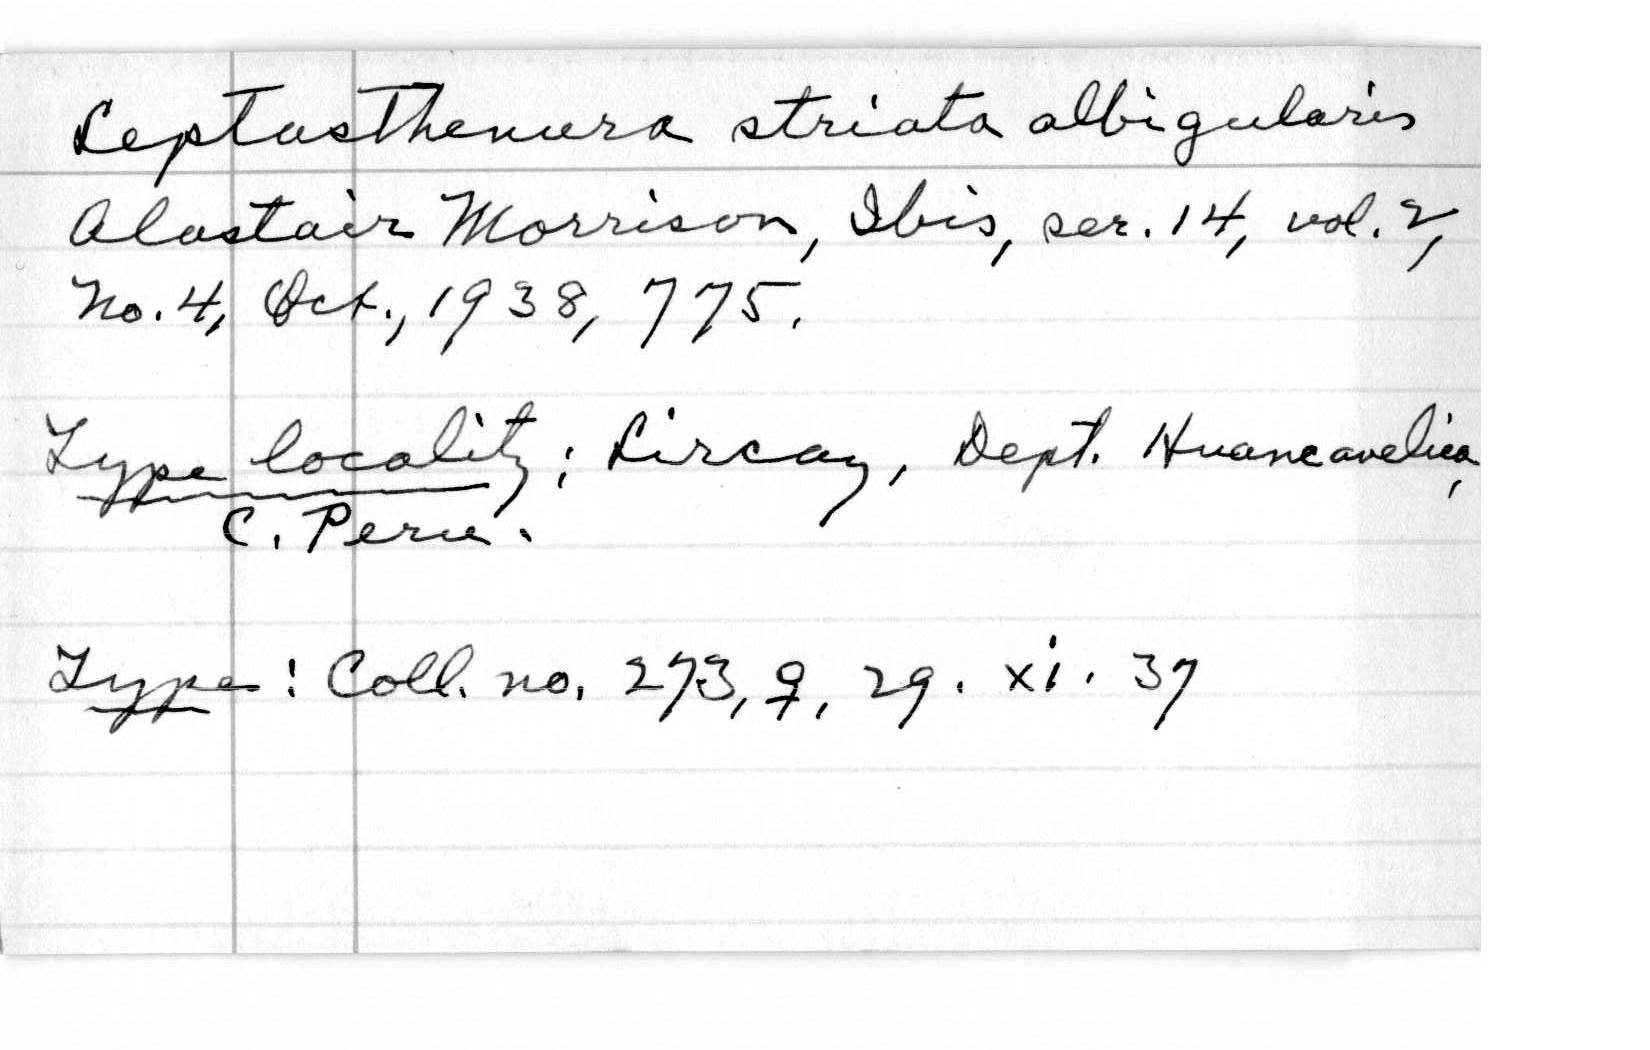 Leptasthenura striata albigularis
Alastair Morrison, Ibis, ser. 14, vol. 2,
No. 4, Oct., 1938, 775.
Type locality: Lircay, Dept. Huancavelica,
C. Peru.
Type: Coll. no. 273, ♀, 29. xi. 37